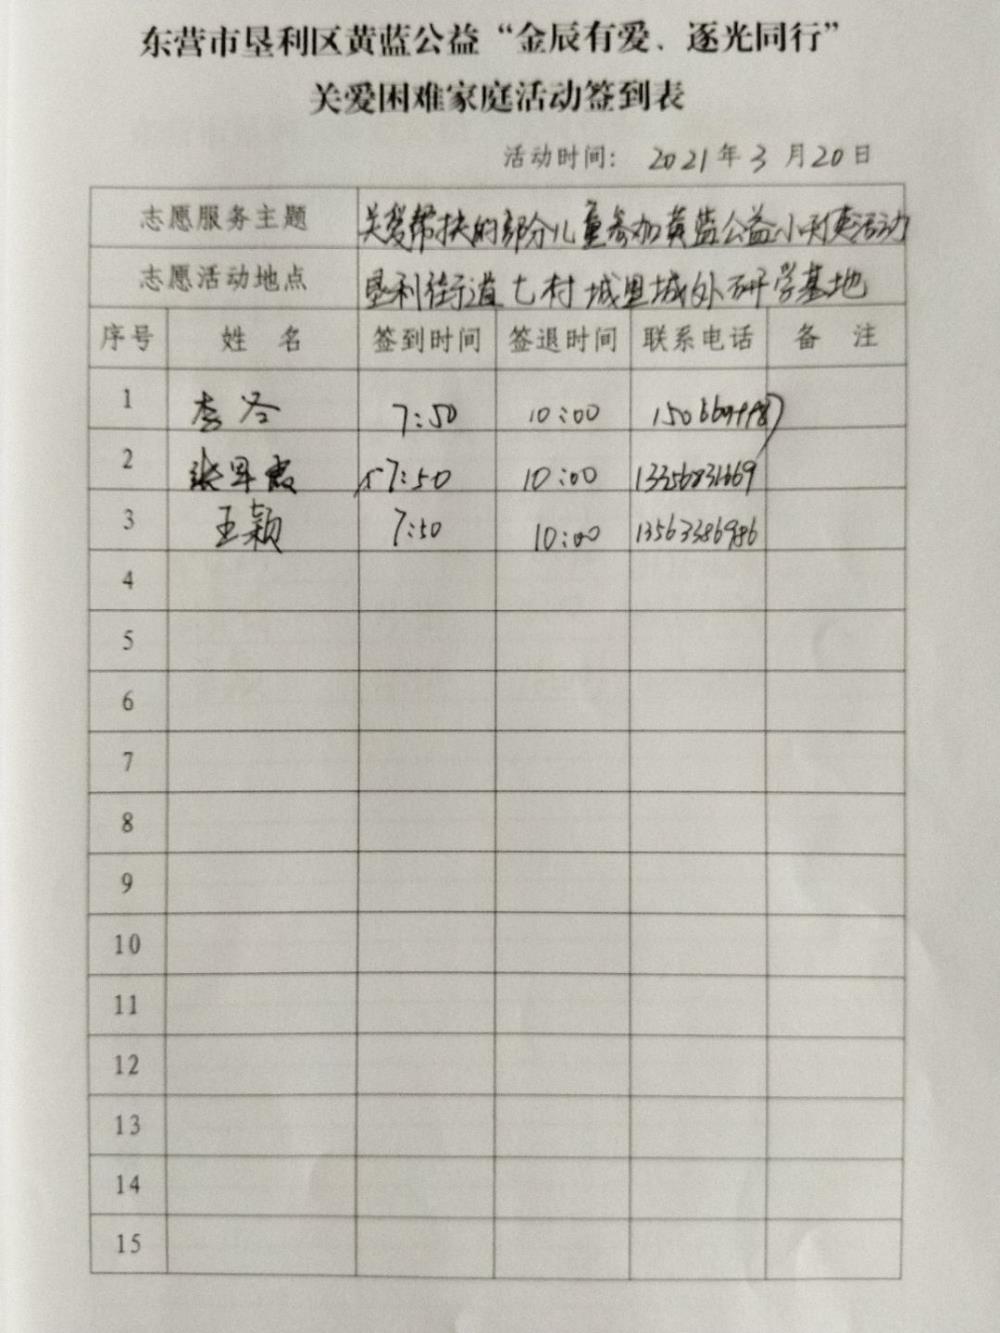 东营市垦利区黄蓝公益“金辰有爱、逐光同行”
关爱困难家庭活动签到表
活动时间： 2021年3月20日
志愿服务主题 关爱帮扶的部分儿童参加黄蓝公益小活动
志愿活动地点 垦利街道七村城里城外研学基地
序号 姓 名 签到时间 签退时间 联系电话 备 注
1 李 7:50 10:00
2 张 霞 7:50 10:00
3 王颖 7:50 10:00 13563386986
4
5
6
7
8
9
10
11
12
13
14
15